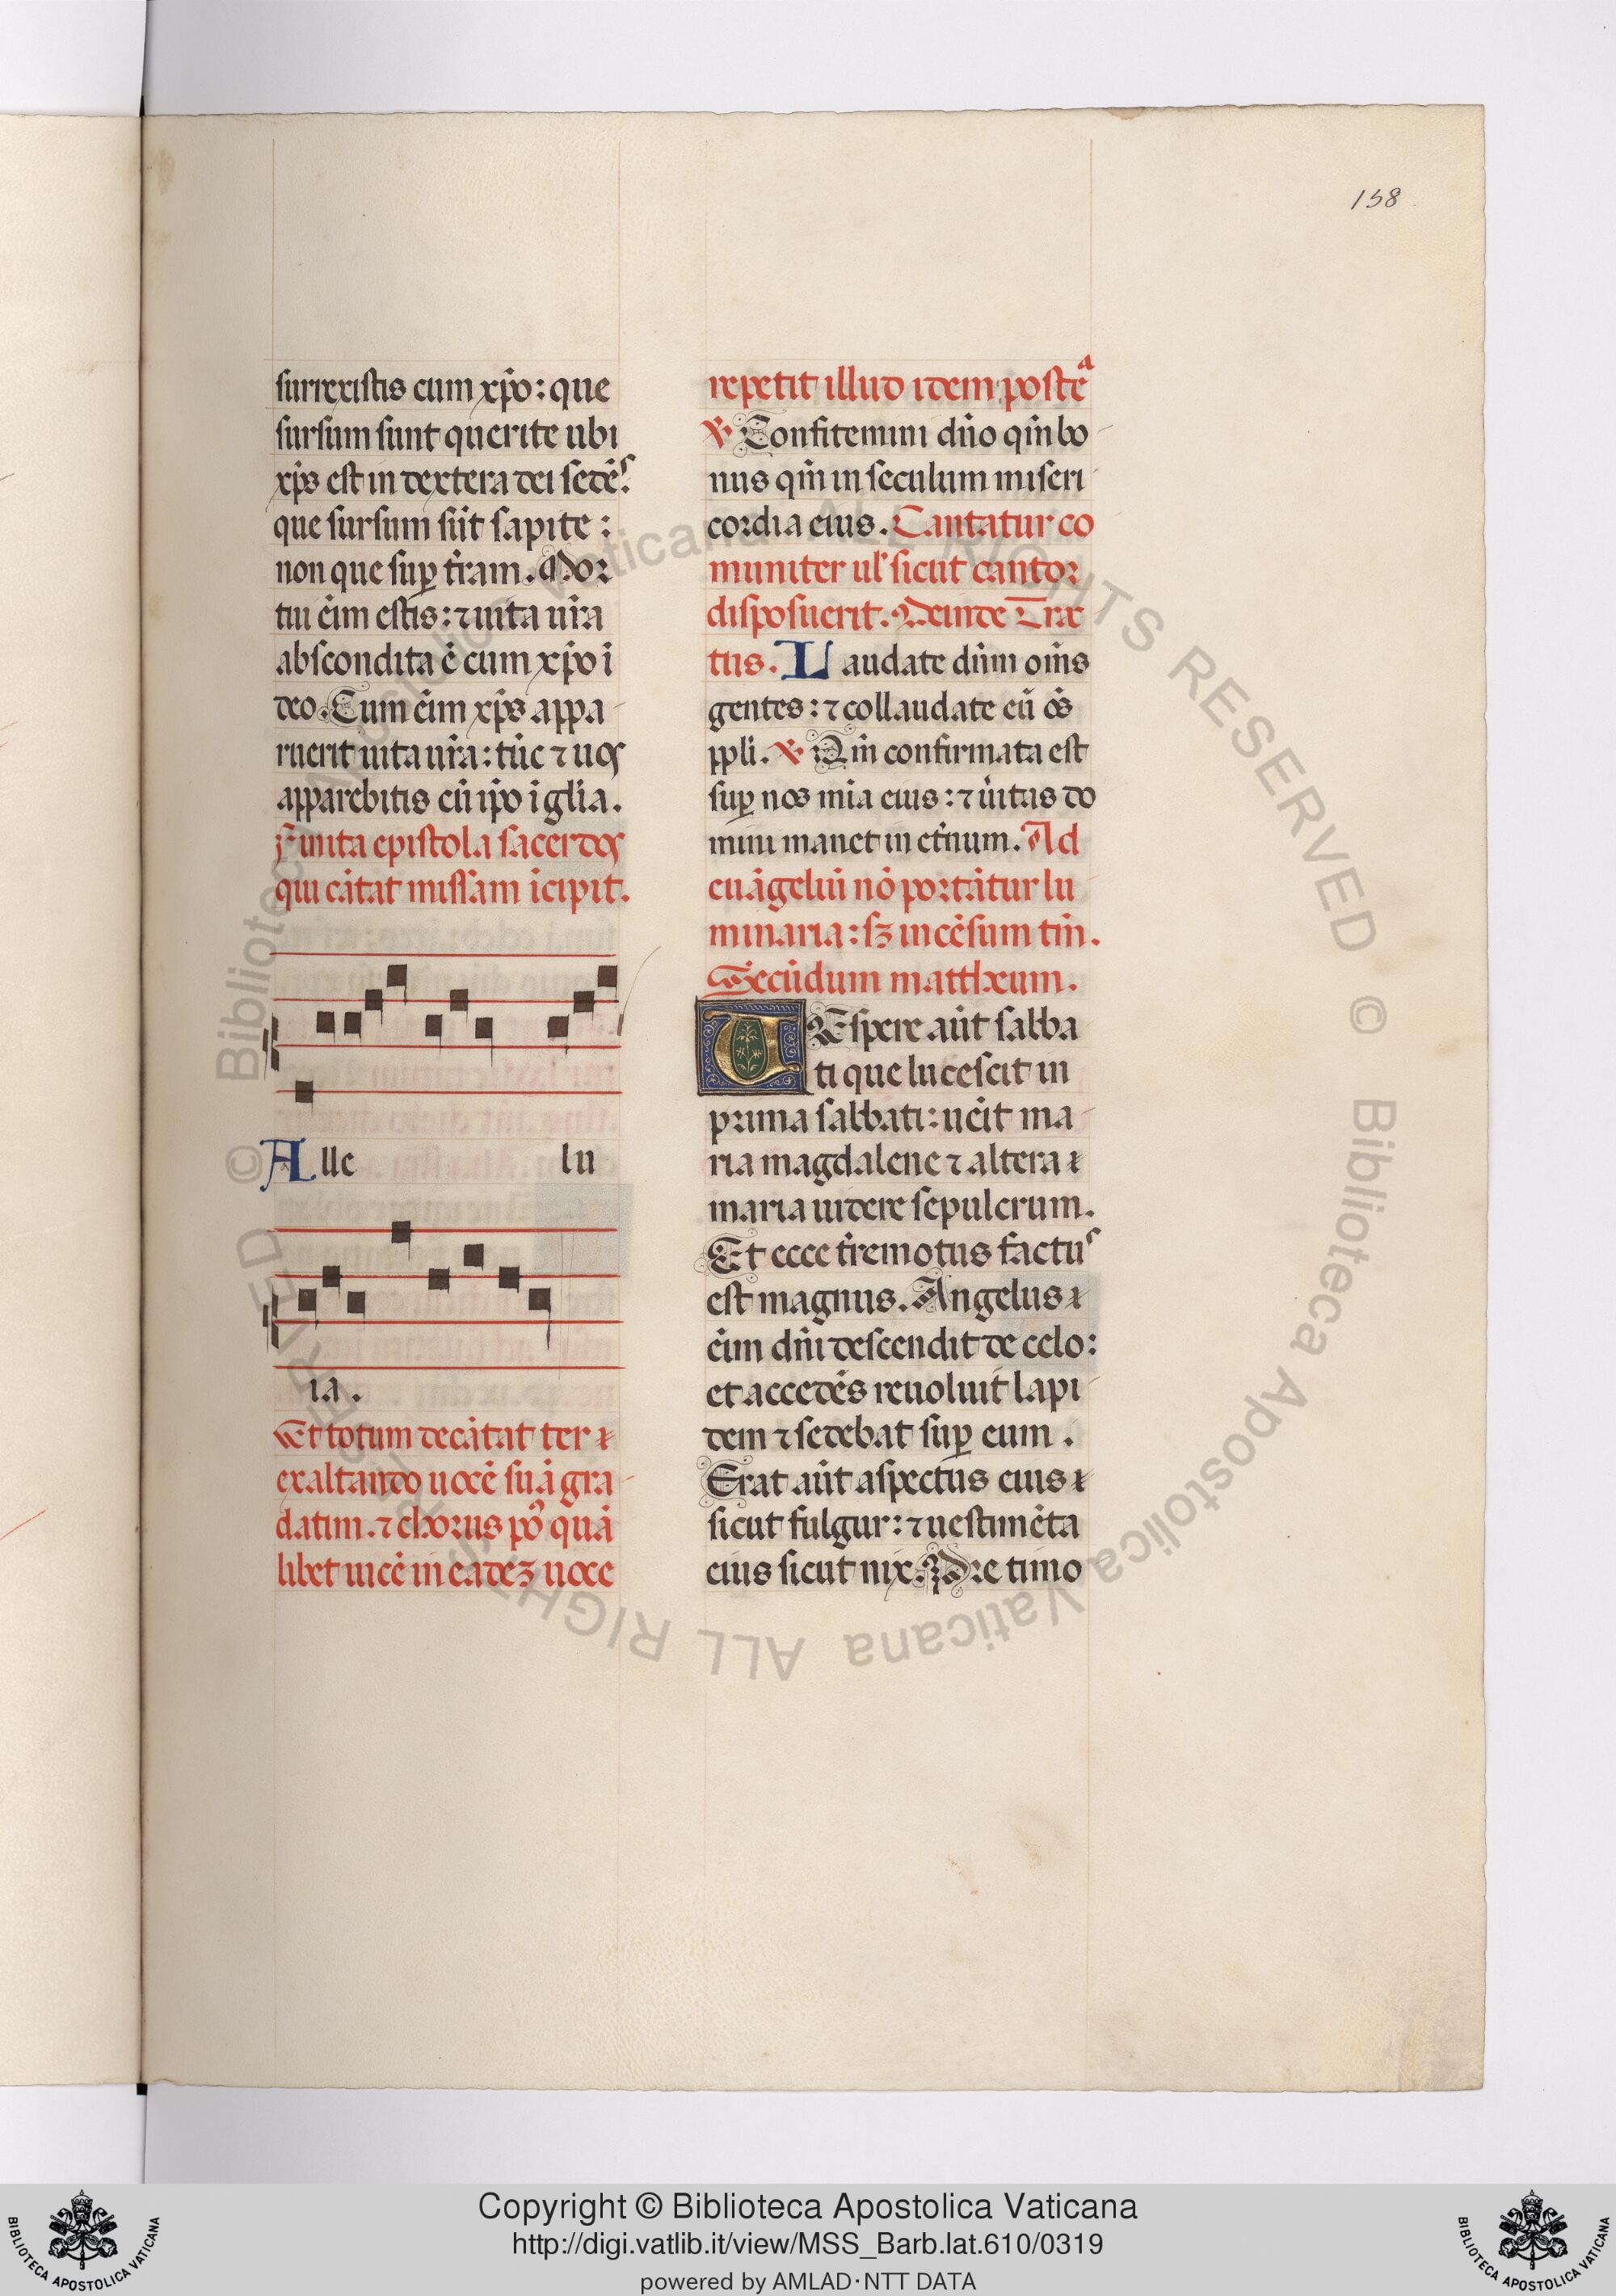 158
surrexistis cum xp̄o: que
sursum sunt querite ubi
xp̄s est in dextera dei sedē⁹.
que sursum sūt sapite:
non que suꝑ t̄ram. Mor
tui ei̅m estis: ⁊ uita ur̄a
abscondita ē cum xp̄o ī
deo. Cum ei̅m xp̄s appa
ruerit uita ur̄a: tūc ⁊ uos
apparebitis cū ip̄o ī gl̄ia.
Finita epistola sacerdos
qui cātat missam īcipit.
Alle lu
ia.
Et totum decātat ter
exaltando uocē suā gra
datim. ⁊ chorus pꝰ quā
libet uicē in eadeꝫ uoce
repetit illud idem posteᵃ
℣ Confitemini dn̄o qm̄ bo
nus qm̄ in seculum miseri
cordia eius. Cantatur co
muniter ul̓ sicut cantor
disposuerit. Deinde Trac
tus. Laudate dn̄m om̄s
gentes: ⁊ collaudate eū os̄
pp̄li. ℣ Qm̄ confirmata est
suꝑ nos mīa eius: ⁊ ūitas do
mini manet in et̄num. Ad
euāgeliū nō portātur lu
minaria: sꝫ incēsum tm̄.
Secūdum mattheum.
VEspere aūt sabba
ti que lucescit in
prima sabbati: uēit ma
ria magdalene ⁊ altera
maria uidere sepulcrum.
Et ecce t̄remotus factuˢ
est magnus. Angelus
ei̅m dn̄i descendit de celo:
et accedēs reuoluit lapi
dem ⁊ sedebat suꝑ eum.
Erat aūt aspectus eius
sicut fulgur: ⁊ uestimēta
eius sicut nix. Pre timo
© Biblioteca Apostolica Vaticana ALL RIGHTS RESERVED © Biblioteca Apostolica Vaticana ALL RIGHTS RESERVED
Copyright © Biblioteca Apostolica Vaticana
http://digi.vatlib.it/view/MSS_Barb.lat.610/0319
powered by AMLAD·NTT DATA
BIBLIOTECA APOSTOLICA VATICANA
BIBLIOTECA APOSTOLICA VATICANA